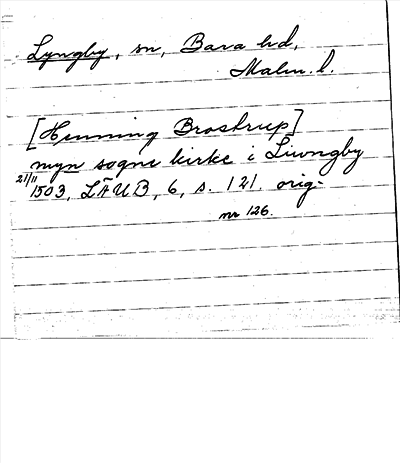 Lyngby, sn, Bara hd,
Malm. l.
[Henning Brostrup]
myn sogne kirke i Liwngby
21/11 1503, LÄUB, 6, s. 121. orig-
nr 126.